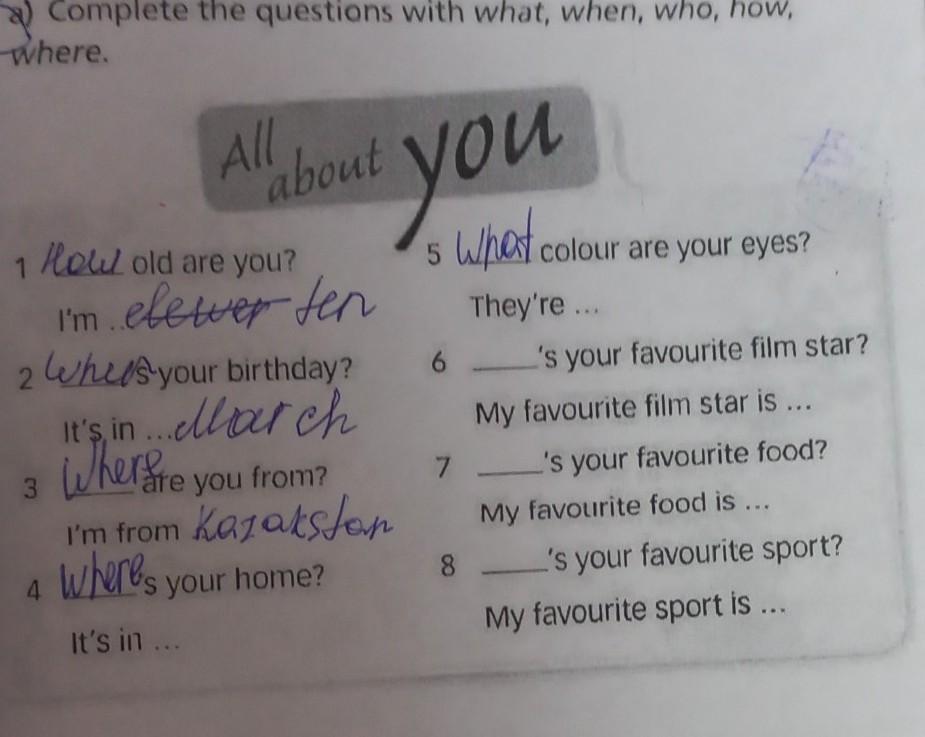 a) Complete the questions with what, when, who, how,
where.
All about you
1 How old are you?
I'm .. ten
2 When's your birthday?
It's in ... March
3 Where are you from?
I'm from Kazakstan
4 Where's your home?
It's in ...
5 What colour are your eyes?
They're ...
6 ____'s your favourite film star?
My favourite film star is ...
7 ____'s your favourite food?
My favourite food is ...
8 ____'s your favourite sport?
My favourite sport is ...